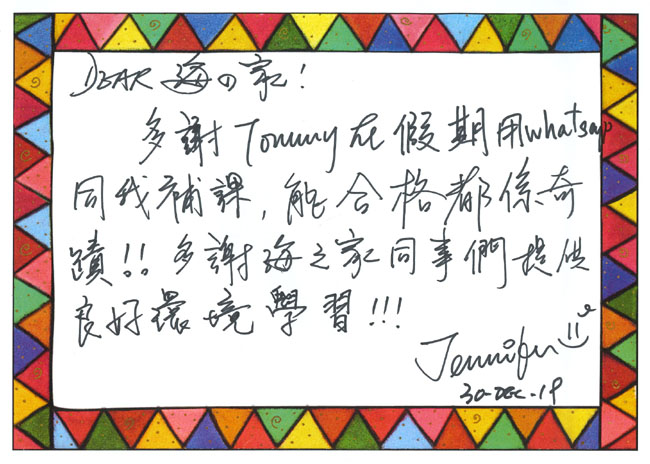 DEAR 海の家!
多謝Tommy在假期用whatsapp
同我補課,能合格都係奇
蹟!!多謝海之家同事們提供
良好環境學習!!!
Jennifer
30-DEC-19